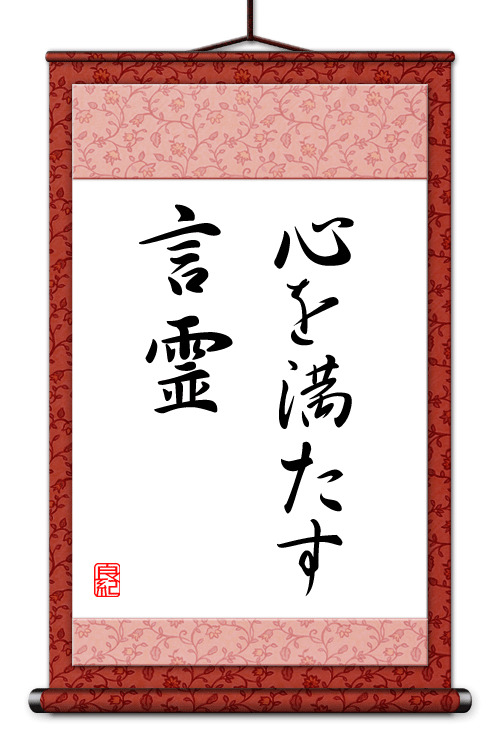 心を満たす
言霊
良紀